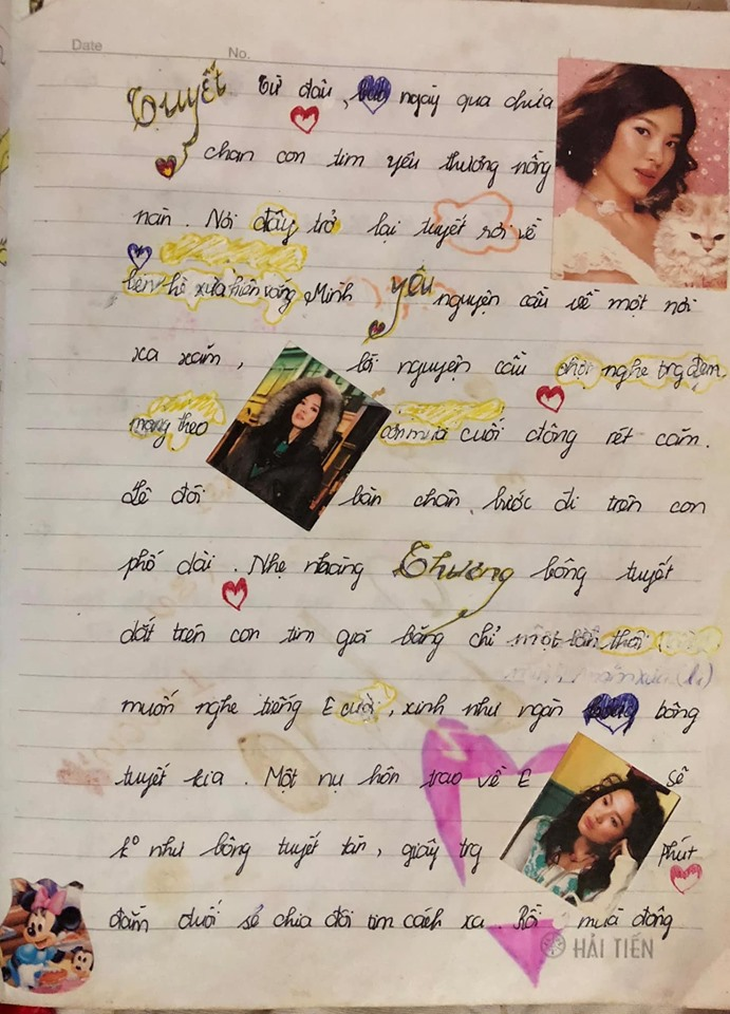 Date No.
Tuyết từ đâu, ngày qua chứa
chan con tim yêu thương nồng
nàn. Nơi đây trở lại tuyết rơi về
bên hè xưa hiên vắng Minh yêu nguyện cầu về một nơi
xa xăm, lời nguyện cầu chợt nghe trg đêm
mang theo cơn mưa cuối đông rét căm.
Lê đôi bàn chân bước đi trên con
phố dài. Nhẹ nhàng Thương bông tuyết
dắt trên con tim giá băng chỉ một lần thôi
muốn nghe tiếng E cười, xinh như ngàn bông
tuyết kia. Một nụ hôn trao về E sẽ
ko như bông tuyết tàn, giây trg phút
đắm đuối sẻ chia đôi tim cách xa. Rồi mùa đông
HẢI TIẾN